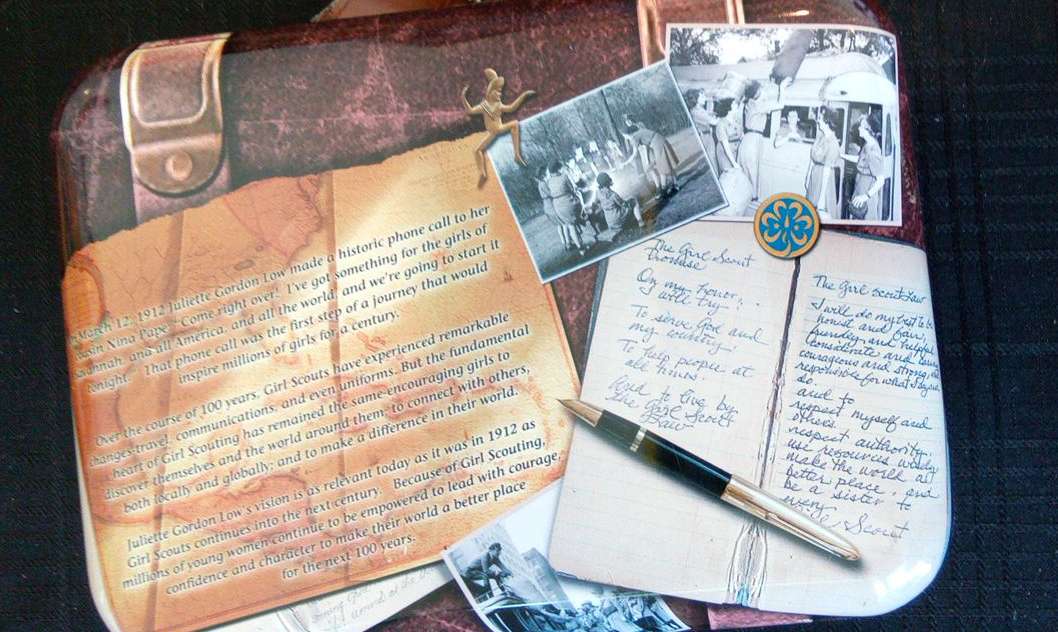 March 12, 1912 Juliette Gordon Low made a historic phone call to her
cousin Nina Pape, "Come right over! I've got something for the girls of
Savannah, and all America, and all the world, and we're going to start it
tonight." That phone call was the first step of a journey that would
inspire millions of girls for a century.
Over the course of 100 years, Girl Scouts have experienced remarkable
changes-travel, communications, and even uniforms. But the fundamental
heart of Girl Scouting has remained the same-encouraging girls to
discover themselves and the world around them; to connect with others,
both locally and globally; and to make a difference in their world.
Juliette Gordon Low's vision is as relevant today as it was in 1912 as
Girl Scouts continues into the next century. Because of Girl Scouting,
millions of young women continue to be empowered to lead with courage,
confidence and character to make their world a better place
for the next 100 years.
The Girl Scout
Promise
On my honor,
I will try:
To serve God and
my country,
To help people at
all times,
And to live by
the Girl Scout
Law
The Girl Scout Law
I will do my best to be
honest and fair,
friendly and helpful
considerate and caring
courageous and strong, and
responsible for what I say and
do.
and to
respect myself and
others.
respect authority,
use resources wisely
make the world a
better place, and
be a sister to
every
Girl Scout